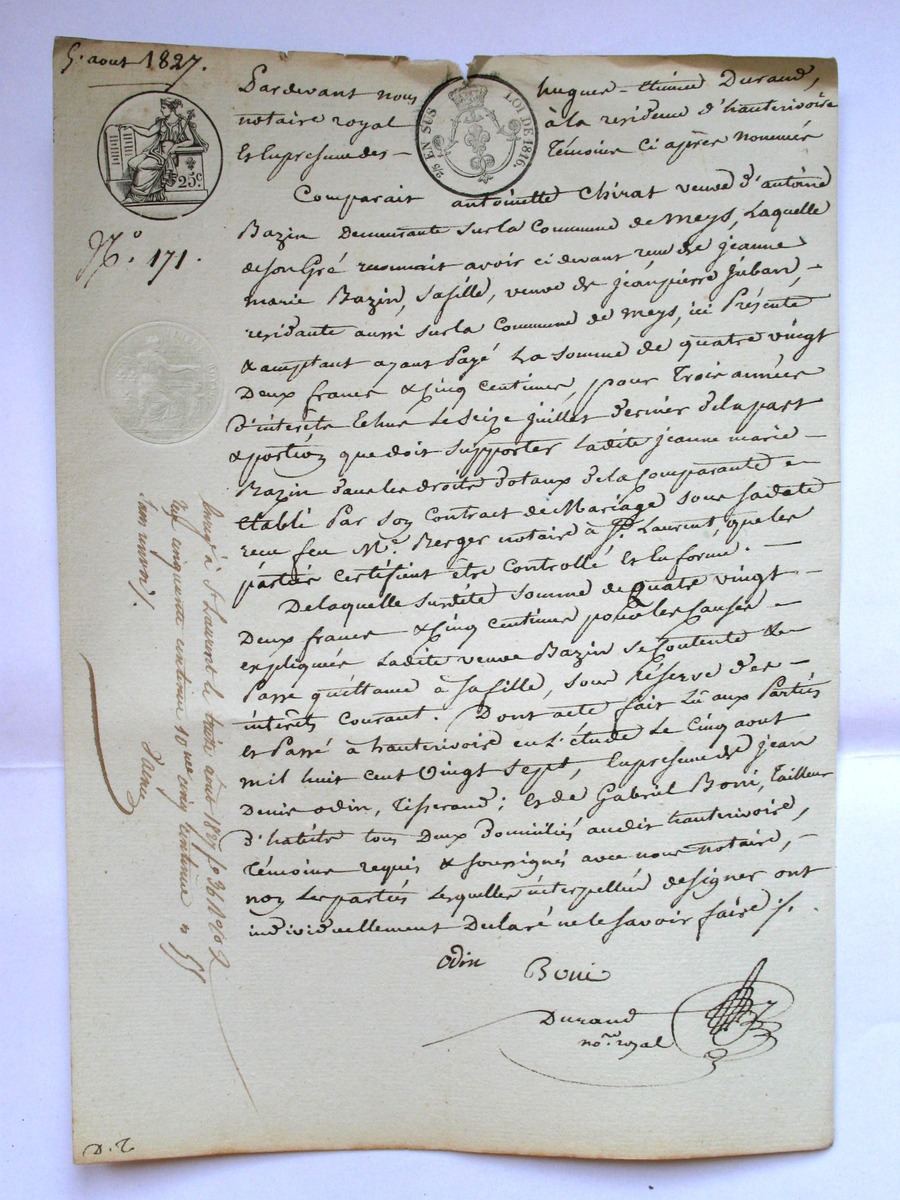 5. aout 1827.
25c
2/5 EN SUS
LOI DE 1816.
No. 171.
Pardevant nous hugues-étienne Durand,
notaire royal à la residence d'hauterivoire
Et En presence des - témoins ci après nommés
Comparait antoinette Chirat veuve d'antoine
Bazin Demeurante sur la Commune de Meys, Laquelle
de son Gré reconnait avoir ci devant reçu de jeanne
marie Bazin, sa fille, veuve de jean pierre juban, -
residante aussi sur la Commune de Meys, ici Présente
& acceptant ayant Payé La Somme de quatre vingt
Deux francs & Cinq Centimes, pour Trois années
d'intérêts Echus Le Seize juillet dernier de la part
& portion que doit Supporter Ladite jeanne marie -
Bazin dans les droits dotaux de la Comparante -
Etabli Par son Contract de Mariage sous sa date
reçu feu Me. Berger notaire à St. Laurent, que les
parties certifient être Controllé Et En forme. -
De laquelle Susdite Somme de Quatre vingt -
Deux francs & Cinq Centimes pour les Causes -
expliquées Ladite veuve Bazin se Contente &
Passe quittance à sa fille, sous Réserve des -
intérêts Courant. Dont acte fait Lû aux Parties
et Passé à hauterivoire en L'étude Le Cinq aout
mil huit Cent Vingt Sept, En presence de jean
Denis odin, Tisserand; et de Gabriel Boni, Tailleur
d'habits tous Deux domiciliés audit hauterivoire,
Témoins requis & soussignés avec nous notaire, -
non Les parties Lesquelles interpellées de signer ont
individuellement Déclaré ne le savoir faire ./.
odin
Boni
Durand
nore. royal
Enregé à St Laurent le treize août 1827 fo 36 Ro Co 2
reçu cinquante centimes 10me cinq centimes
sans renvoi.
D. T.